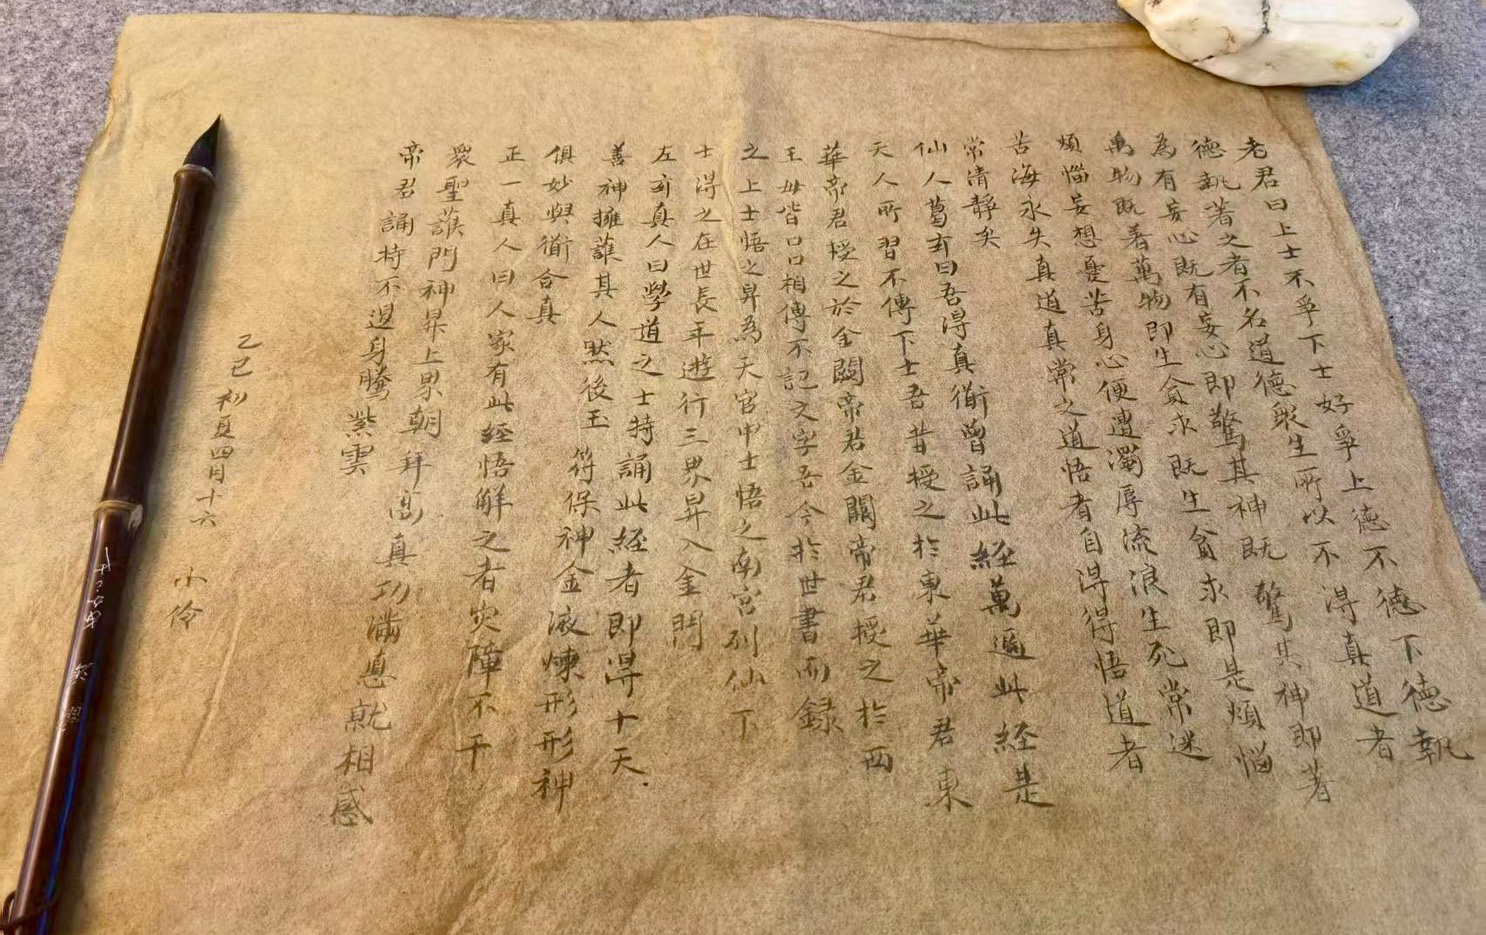 老君曰上士不爭下士好爭上德不德下德執
德執著之者不名道德眾生所以不得真道者
為有妄心既有妄心即驚其神既驚其神即著
萬物既著萬物即生貪求既生貪求即是煩惱
煩惱妄想憂苦身心便遭濁辱流浪生死常迷
苦海永失真道真常之道悟者自得得悟道者
常清靜矣
仙人葛玄曰吾得真衜曾誦此經萬遍此經是
天人所習不傳下士吾昔授之於東華帝君東
華帝君授之於金闕帝君金闕帝君授之於西
王母皆口口相傳不記文字吾今於世書而錄
之上士悟之昇為天官中士悟之南宮列仙下
士得之在世長年遊行三界昇入金門
左玄真人曰學道之士持誦此經者即得十天
善神擁護其人然後玉符保神金液煉形形神
俱妙與衜合真
正一真人曰人家有此經悟解之者災障不干
眾聖護門神昇上界朝拜高真功滿惪就相感
帝君誦持不退身騰紫雲
乙巳初夏四月十六
小伶